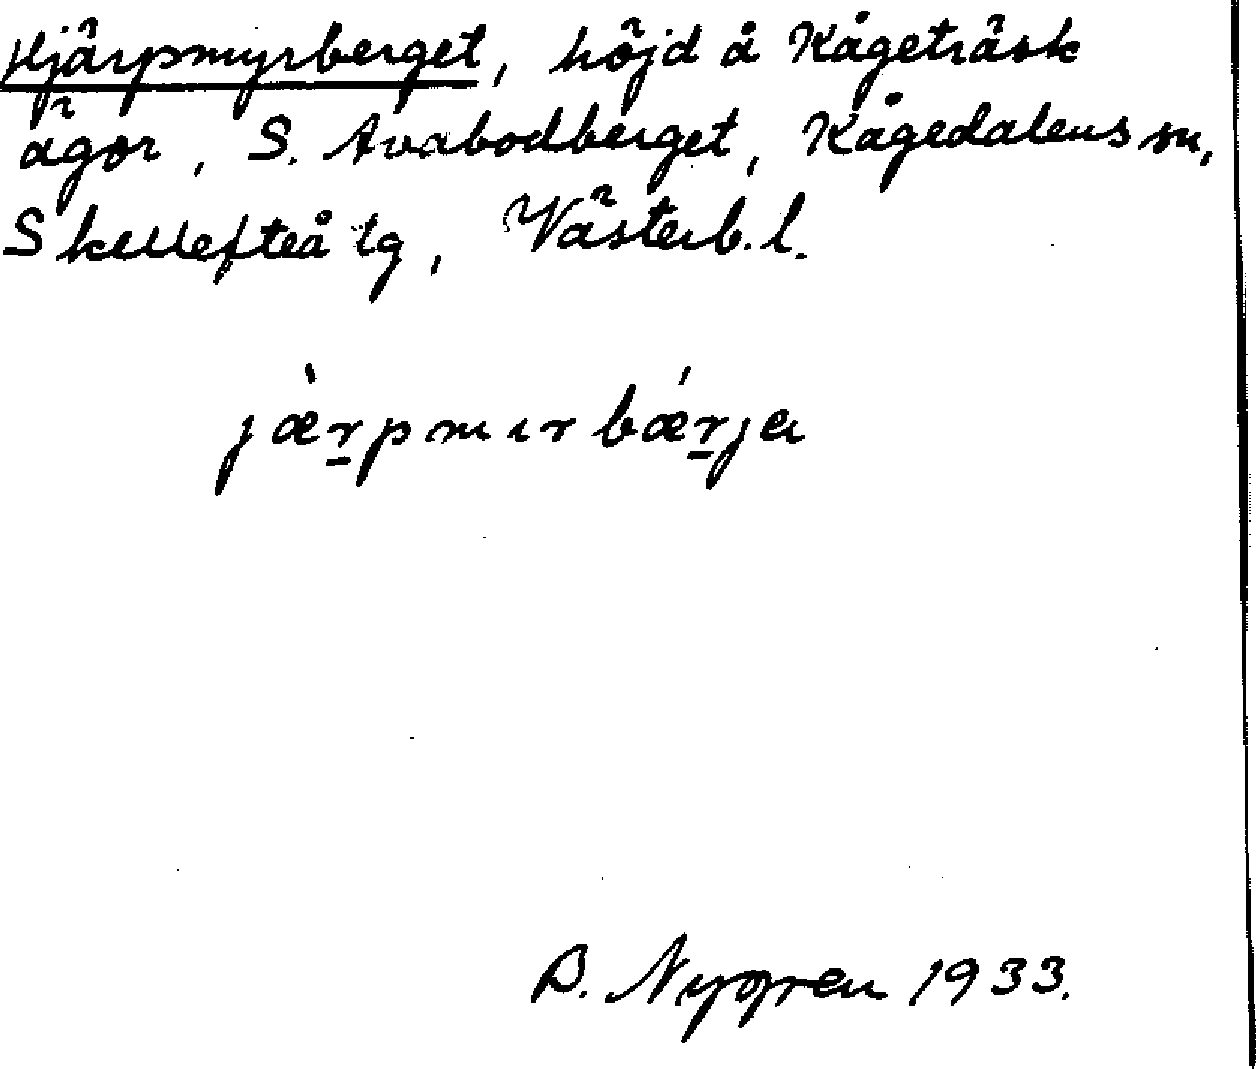 Hjärpmyrberget, höjd å Kågeträsk
ägor, S. Avabodberget, Kågedalens sn,
Skellefteå tg, Västerb. l.
jæ̀r̲pmırbǽr̲ja
B. Nygren 1933.